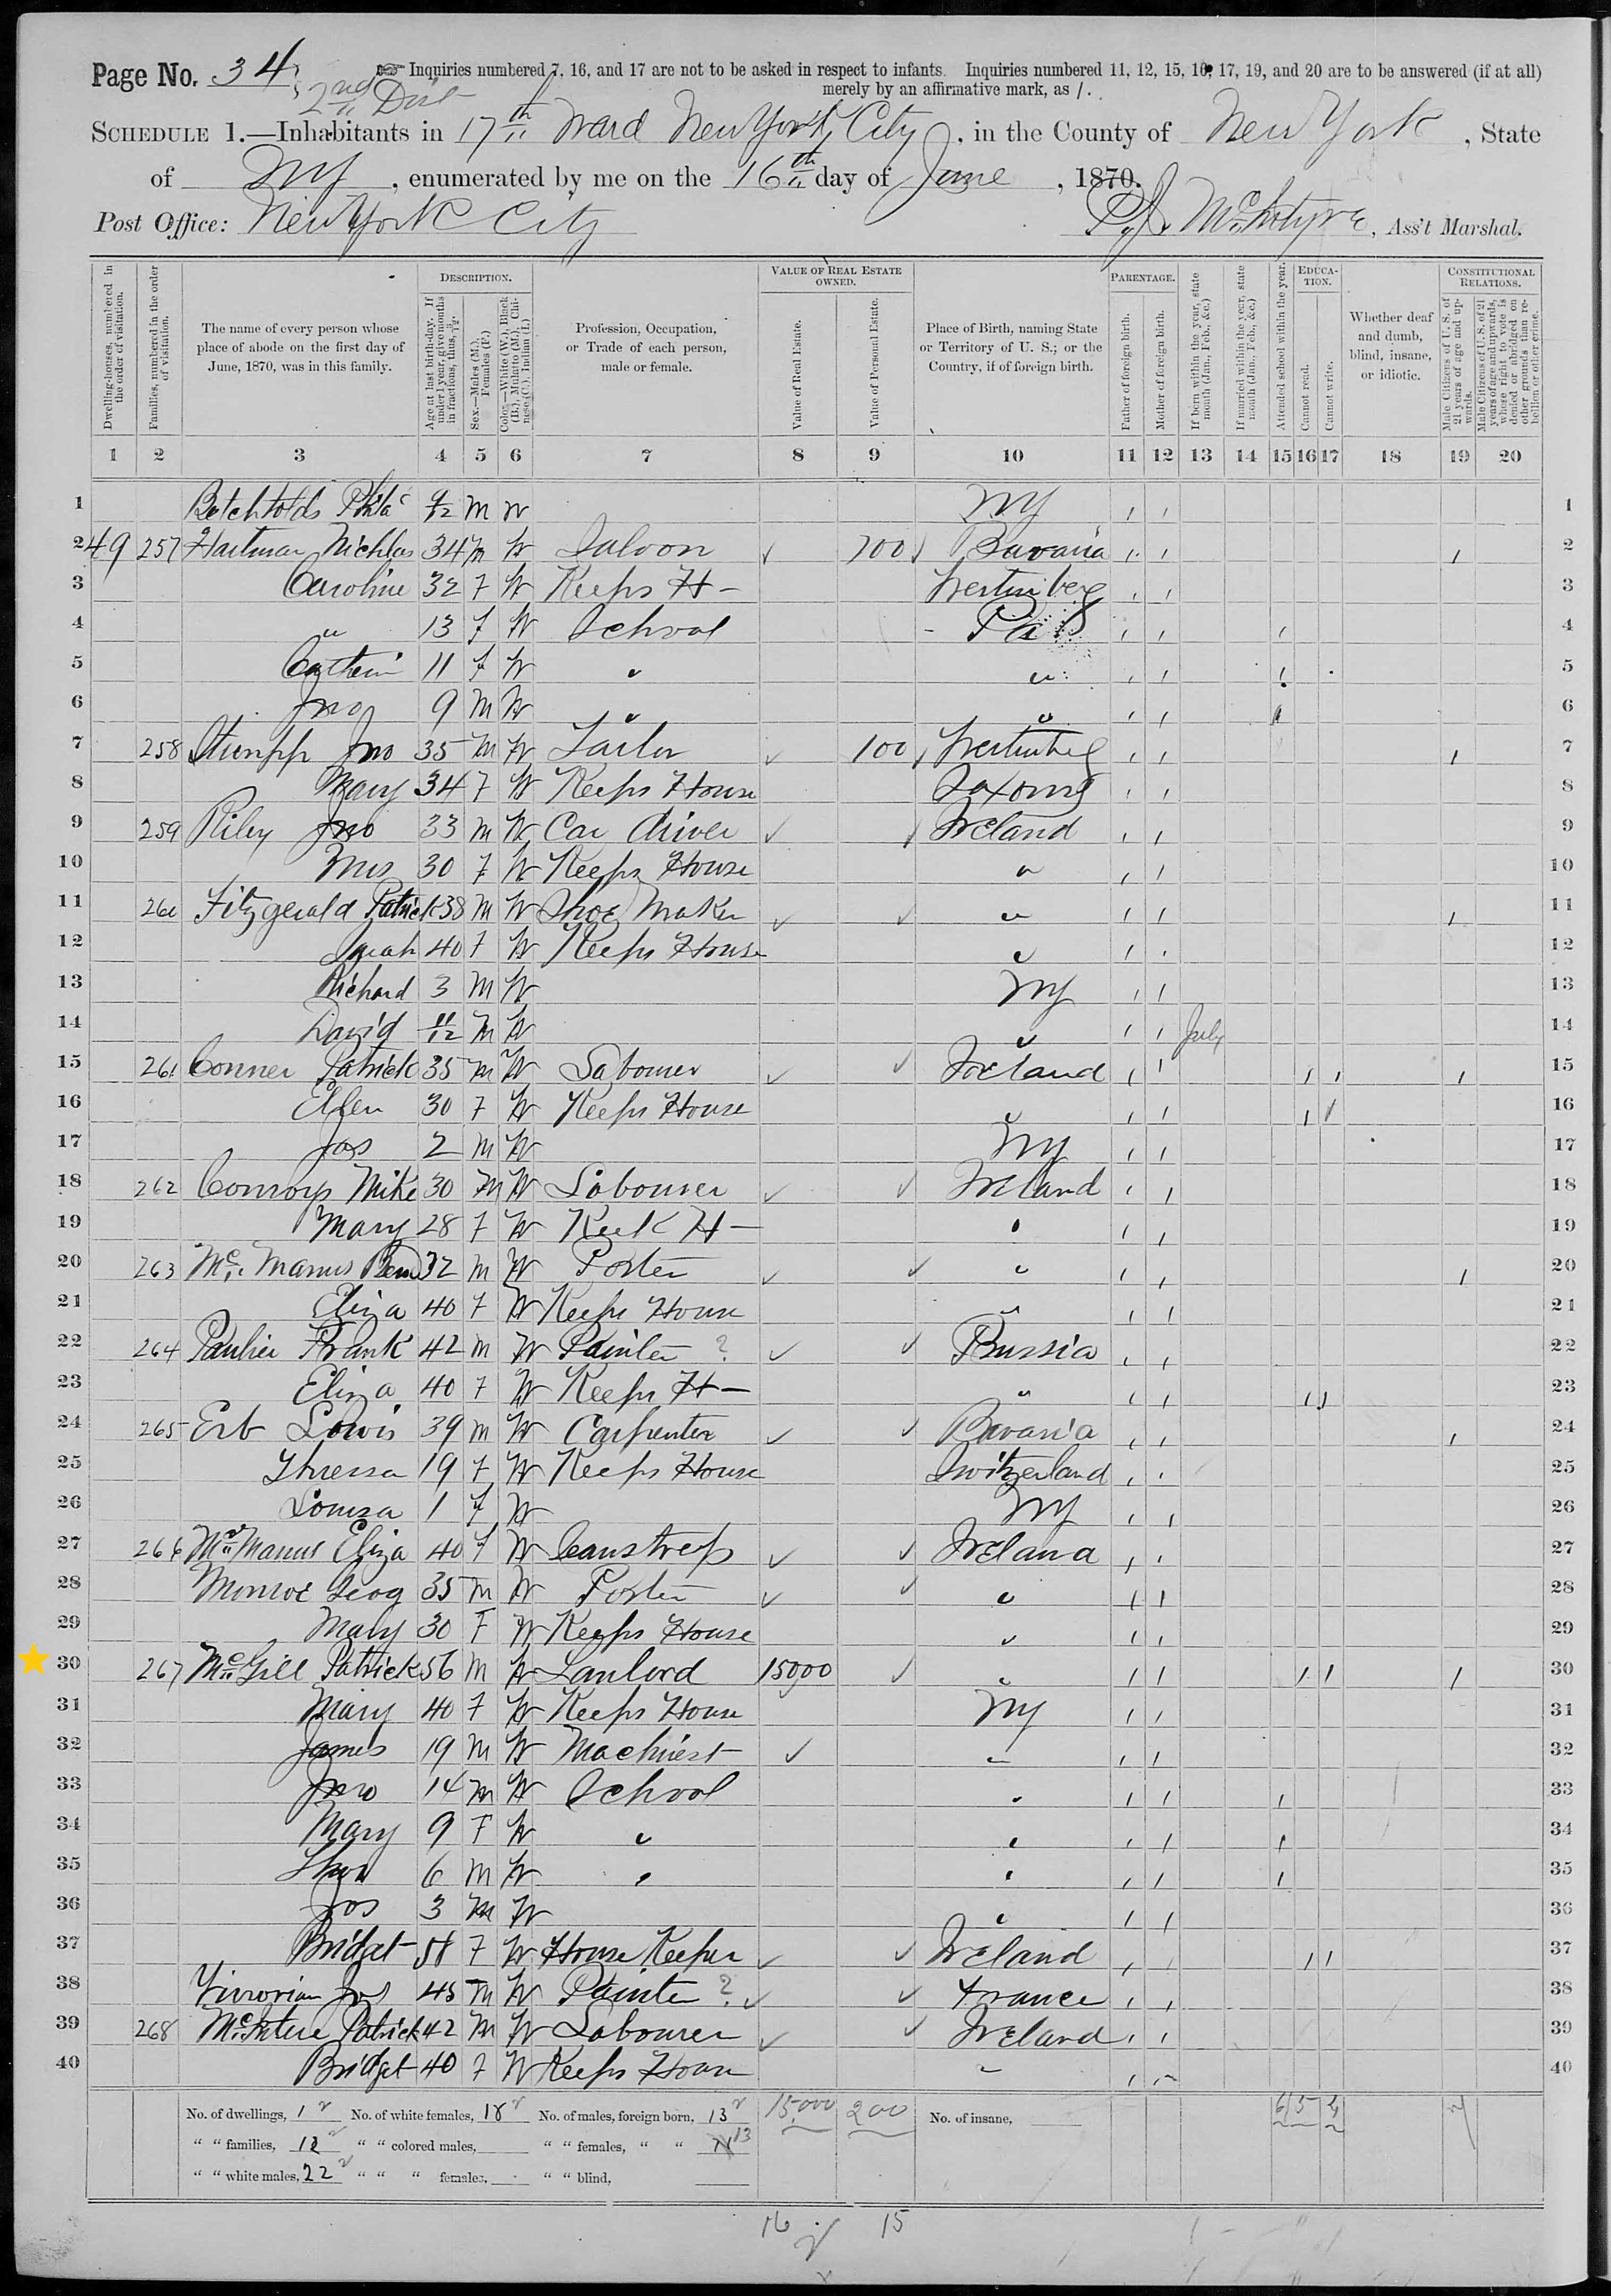 Page No. 34, Inquiries numbered 7, 16, and 17 are not to be asked in respect to infants. Inquiries numbered 11, 12, 15, 16, 17, 19, and 20 are to be answered (if at all)
merely by an affirmative mark, as /.
2nd Dist
SCHEDULE 1.—Inhabitants in 17th Ward New York City, in the County of New York, State
of NY, enumerated by me on the 16th day of June, 1870.
Post Office: New York City P. J. McIntyre, Ass't Marshal.
DESCRIPTION. VALUE OF REAL ESTATE OWNED. PARENTAGE. EDUCATION. CONSTITUTIONAL RELATIONS.
Dwelling-houses, numbered in the order of visitation.
Families, numbered in the order of visitation.
The name of every person whose place of abode on the first day of June, 1870, was in this family.
Age at last birth-day. If under 1 year, give months in fractions, thus, 3/12.
Sex.—Males (M.), Females (F.)
Color.—White (W.), Black (B.), Mulatto (M.), Chinese (C.), Indian (I.)
Profession, Occupation, or Trade of each person, male or female.
Value of Real Estate.
Value of Personal Estate.
Place of Birth, naming State or Territory of U. S.; or the Country, if of foreign birth.
Father of foreign birth.
Mother of foreign birth.
If born within the year, state month (Jan., Feb., &c.)
If married within the year, state month (Jan., Feb., &c.)
Attended school within the year.
Cannot read.
Cannot write.
Whether deaf and dumb, blind, insane, or idiotic.
Male Citizens of U. S. of 21 years of age and upwards.
Male Citizens of U. S. of 21 years of age and upwards, whose right to vote is denied or abridged on other grounds than rebellion or other crime.
1 2 3 4 5 6 7 8 9 10 11 12 13 14 15 16 17 18 19 20
1 9/12 M W NY / / 1
2 49 257 Hartman Nichlas 34 M W Saloon ✓ 700 Bavaria / / / 2
3 Caroline 32 F W Keeps H— / / 3
4 " 13 F W School Pa / / / 4
5 Cathein 11 F W " " / / / 5
6 Jno 9 M W " " / / / 6
7 258 Stumpp Jno 35 M W Tailor ✓ 100 / / / 7
8 Mary 34 F W Keeps House Saxony / / 8
9 259 Riley Jno 33 M W Car Driver ✓ Ireland / / 9
10 Mrs 30 F W Keeps House " / / 10
11 260 Fitzgerald Patrick 38 M W Shoe Maker ✓ ✓ " / / / 11
12 40 F W Keeps House " / / 12
13 Richard 3 M W NY / / 13
14 David 11/12 M W " / / July 14
15 261 Conner Patrick 35 M W Labourer ✓ ✓ Ireland / / / / / 15
16 Ellen 30 F W Keeps House " / / / / 16
17 Jas 2 M W NY / / 17
18 262 Conroys Mike 30 M W Labourer ✓ ✓ Ireland / / 18
19 Mary 28 F W H— " / / 19
20 263 McManus 32 M W Porter ✓ ✓ " / / / 20
21 Eliza 40 F W Keeps House " / / 21
22 264 Frank 42 M W Painter ? ✓ ✓ Prussia / / 22
23 Eliza 40 F W Keeps H— " / / / / 23
24 265 Erb Lowis 39 M W Carpenter ✓ ✓ Bavaria / / / 24
25 Thressa 19 F W Keeps House Switzerland / / 25
26 Louisa 1 F W NY / / 26
27 266 McManus Eliza 40 F W ✓ ✓ Ireland / / 27
28 Monroe Geog 35 M W Porter ✓ ✓ " / / 28
29 Mary 30 F W Keeps House " / / 29
30 267 McGill Patrick 56 M W Lanlord 15000 ✓ " / / / / / 30
31 Mary 40 F W Keeps House NY / / 31
32 James 19 M W Machinest ✓ " / / 32
33 Jno 14 M W School " / / / 33
34 Mary 9 F W " " / / / 34
35 Thos 6 M W " " / / / 35
36 Jos 3 M W " / / 36
37 Bridget 58 F W House Keeper ✓ ✓ Ireland / / / / 37
38 Jos 45 M W Painter ? ✓ ✓ France / / 38
39 268 McIntire Patrick 42 M W Labourer ✓ ✓ Ireland / / 39
40 Bridget 40 F W Keeps House " / / 40
No. of dwellings, 1 No. of white females, 18 No. of males, foreign born, 13 15,000 200 No. of insane, 6 5
" " families, 12 " " colored males, " " females, " " 13
" " white males, 22 " " " females, " " blind,
16 15